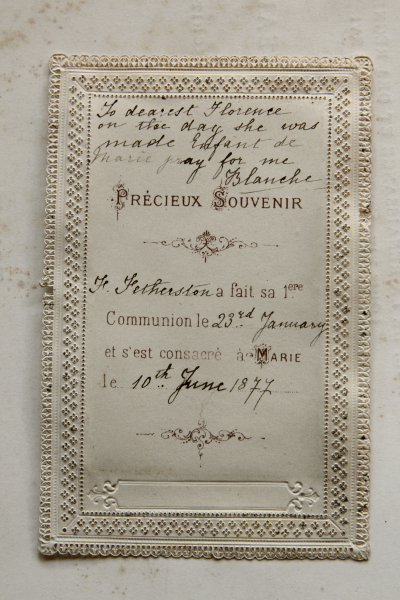 To dearest Florence
on the day she was
made Enfant de
Marie pray for me
Blanche
PRÉCIEUX SOUVENIR
F. Fetherston a fait sa 1ere
Communion le 23.rd January
et s'est consacré à MARIE
le 10th June 1877